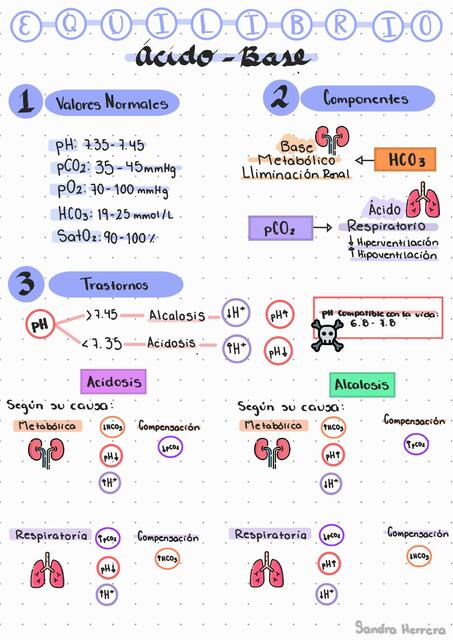 EQUILIBRIO
Ácido - Base
1 Valores Normales
pH: 7.35 - 7.45
pCO2: 35 - 45 mmHg
pO2: 70 - 100 mmHg
HCO3: 19 - 25 mmol/L
SatO2: 90 - 100 %
2 Componentes
Base
Metabólico
Lliminación Renal
HCO3
pCO2
Ácido
Respiratorio
↓ Hiperventilación
↑ Hipoventilación
3 Trastornos
pH
>7.45 Alcalosis ↓H+ pH↑
<7.35 Acidosis ↑H+ pH↓
pH compatible con la vida:
6.8 - 7.8
Acidosis
Según su causa:
Metabólica ↓HCO3 Compensación
pH↓ ↓pCO2
↑H+
Respiratoria ↑pCO2 Compensación
pH↓ ↑HCO3
↑H+
Alcalosis
Según su causa:
Metabólica ↑HCO3 Compensación
pH↑ ↑pCO2
↓H+
Respiratoria ↓pCO2 Compensación
pH↑ ↓HCO3
↓H+
Sandra Herrera